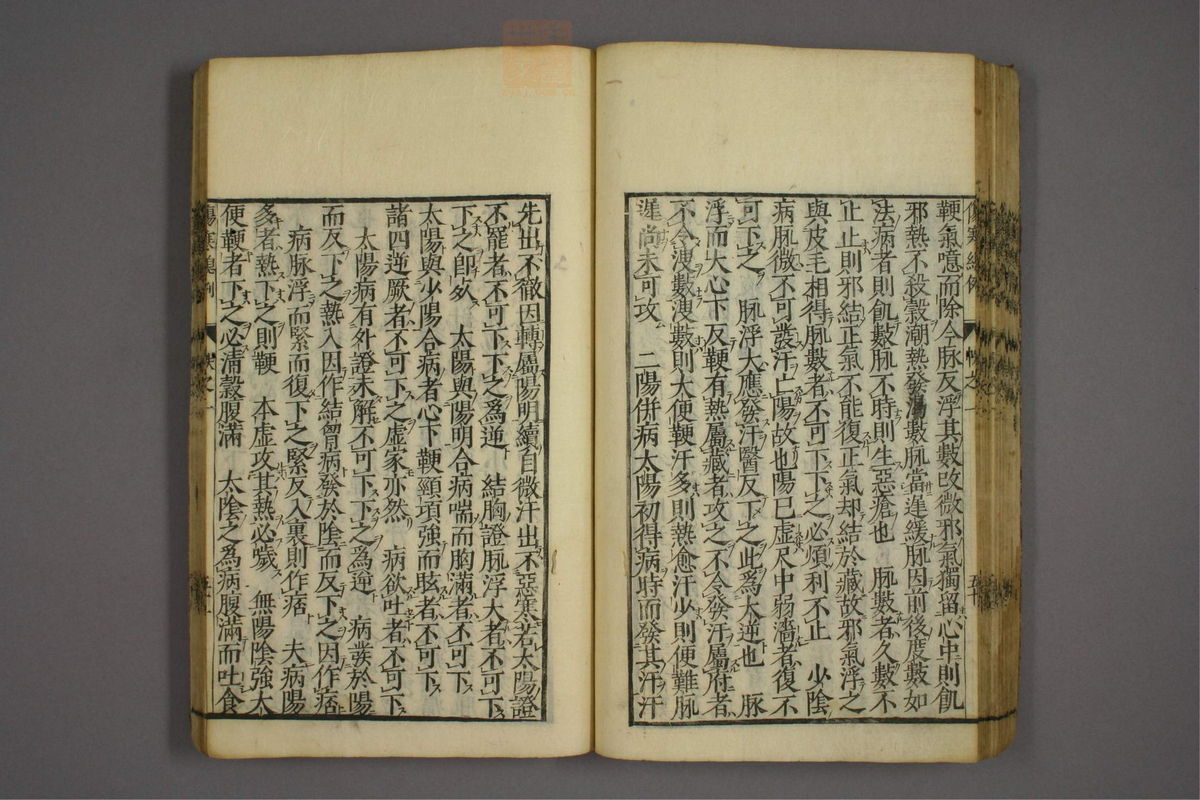 鞕氣噫而除今脉反浮其數改微邪氣獨留心中則飢
邪熱不殺穀潮熱發渴數脉當遲緩脉因前後度數如
法病者則飢數脉不時則生惡瘡也　脉數者久數不
止止則邪結正氣不能復正氣却結於藏故邪氣浮之
與皮毛相得脉數者不可下下之必煩利不止　少陰
病脉微不可發汗亡陽故也陽已虚尺中弱濇者復不
可下之　脉浮大應發汗醫反下之此爲大逆也　脉
浮而大心下反鞕有熱屬藏者攻之不令發汗屬府者
不令溲數溲數則大便鞕汗多則熱愈汗少則便難脉
遲尚未可攻　二陽併病太陽初得病時而發其汗汗
先出不徹因轉屬陽明續自微汗出不惡寒若太陽證
不罷者不可下下之爲逆　結胸證脉浮大者不可下
下之卽死　太陽與陽明合病喘而胸滿者不可下
太陽與少陽合病者心下鞕頸項強而眩者不可下
諸四逆厥者不可下之虚家亦然　病欲吐者不可下
太陽病有外證未解不可下下之爲逆　病發於陽
而反下之熱入因作結胷病發於陰而反下之因作痞
病脉浮而緊而復下之緊反入裏則作痞　夫病陽
多者熱下之則鞕　本虚攻其熱必噦　無陽陰強大
便鞕者下之必淸穀腹滿　太陰之爲病腹滿而吐食